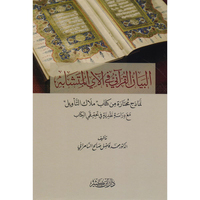 البيان القرآني في الآي المتشابه
نماذج مختارة من كتاب "ملاك التأويل"
مع دراسة نقدية في تحقيقي الكتاب
تأليف
الدكتور محمد فاضل صالح السامرائي